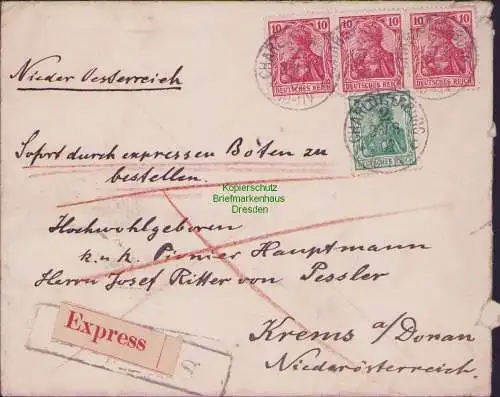 10 10 10
DEUTSCHES REICH DEUTSCHES REICH DEUTSCHES REICH
Nieder Oesterreich
CHARLOTTENBURG
DEUTSCHES REICH
Sofort durch expressen Boten zu
bestellen.
Kopierschutz
Briefmarkenhaus
Dresden
Hochwohlgeboren
k.u.k. Pionier Hauptmann
Herrn Josef Ritter von Pessler
Express
Krems a/Donau
Niederösterreich.